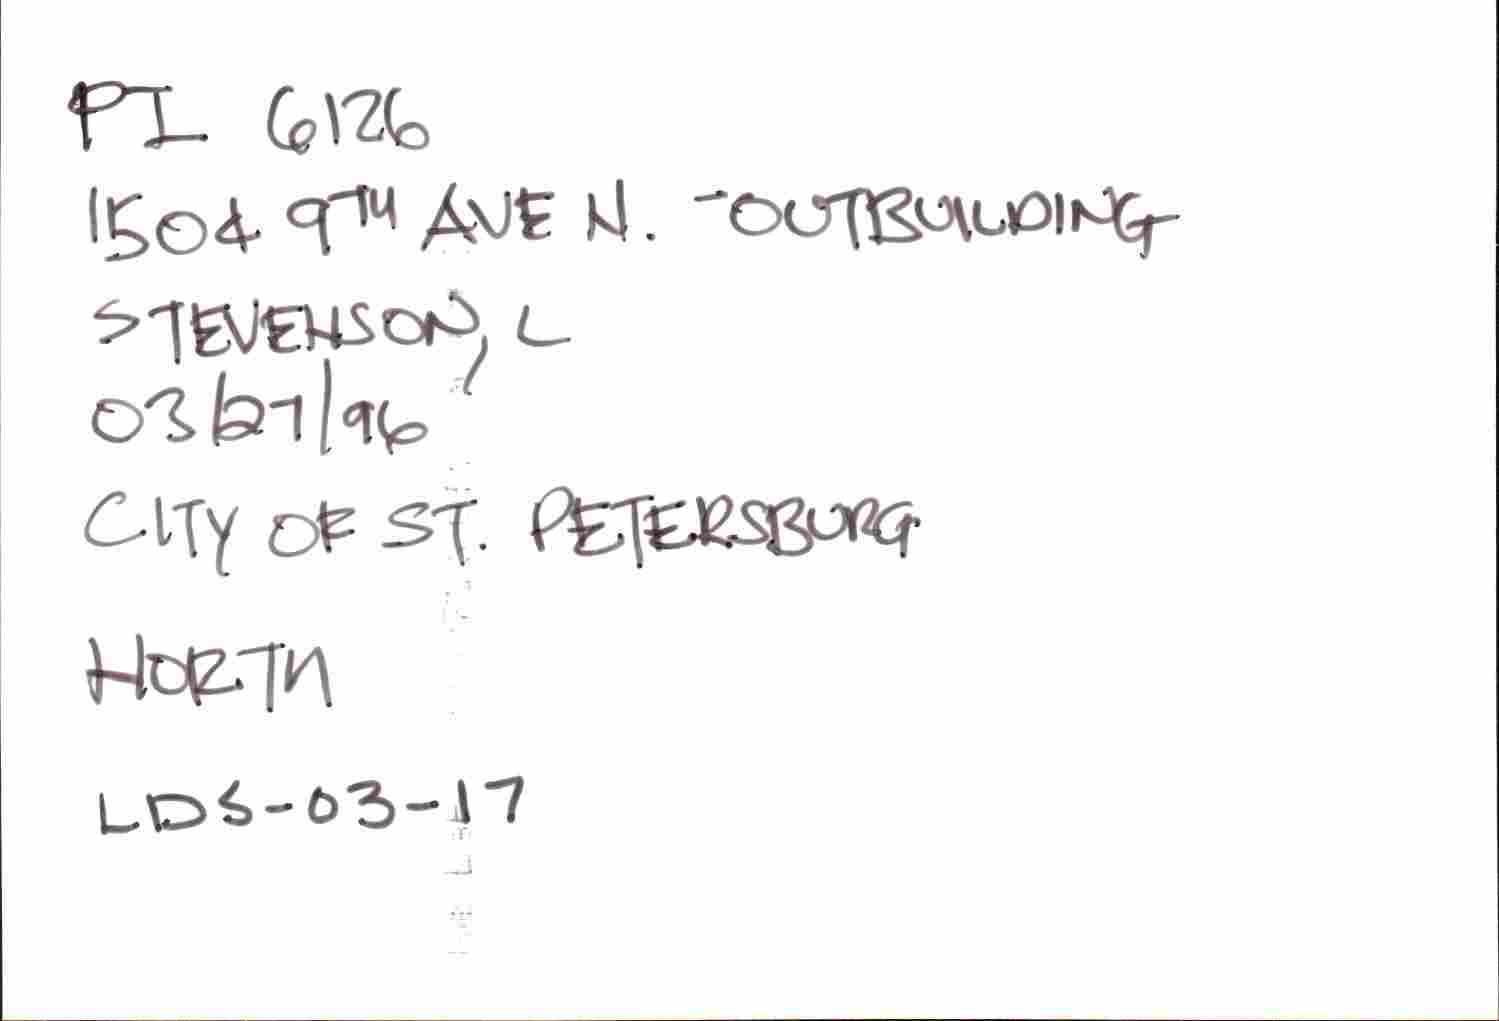 PI 6126
1504 9TH AVE N. -OUTBUILDING
STEVENSON, L
03/27/96
CITY OF ST. PETERSBURG
NORTH
LDS-03-17